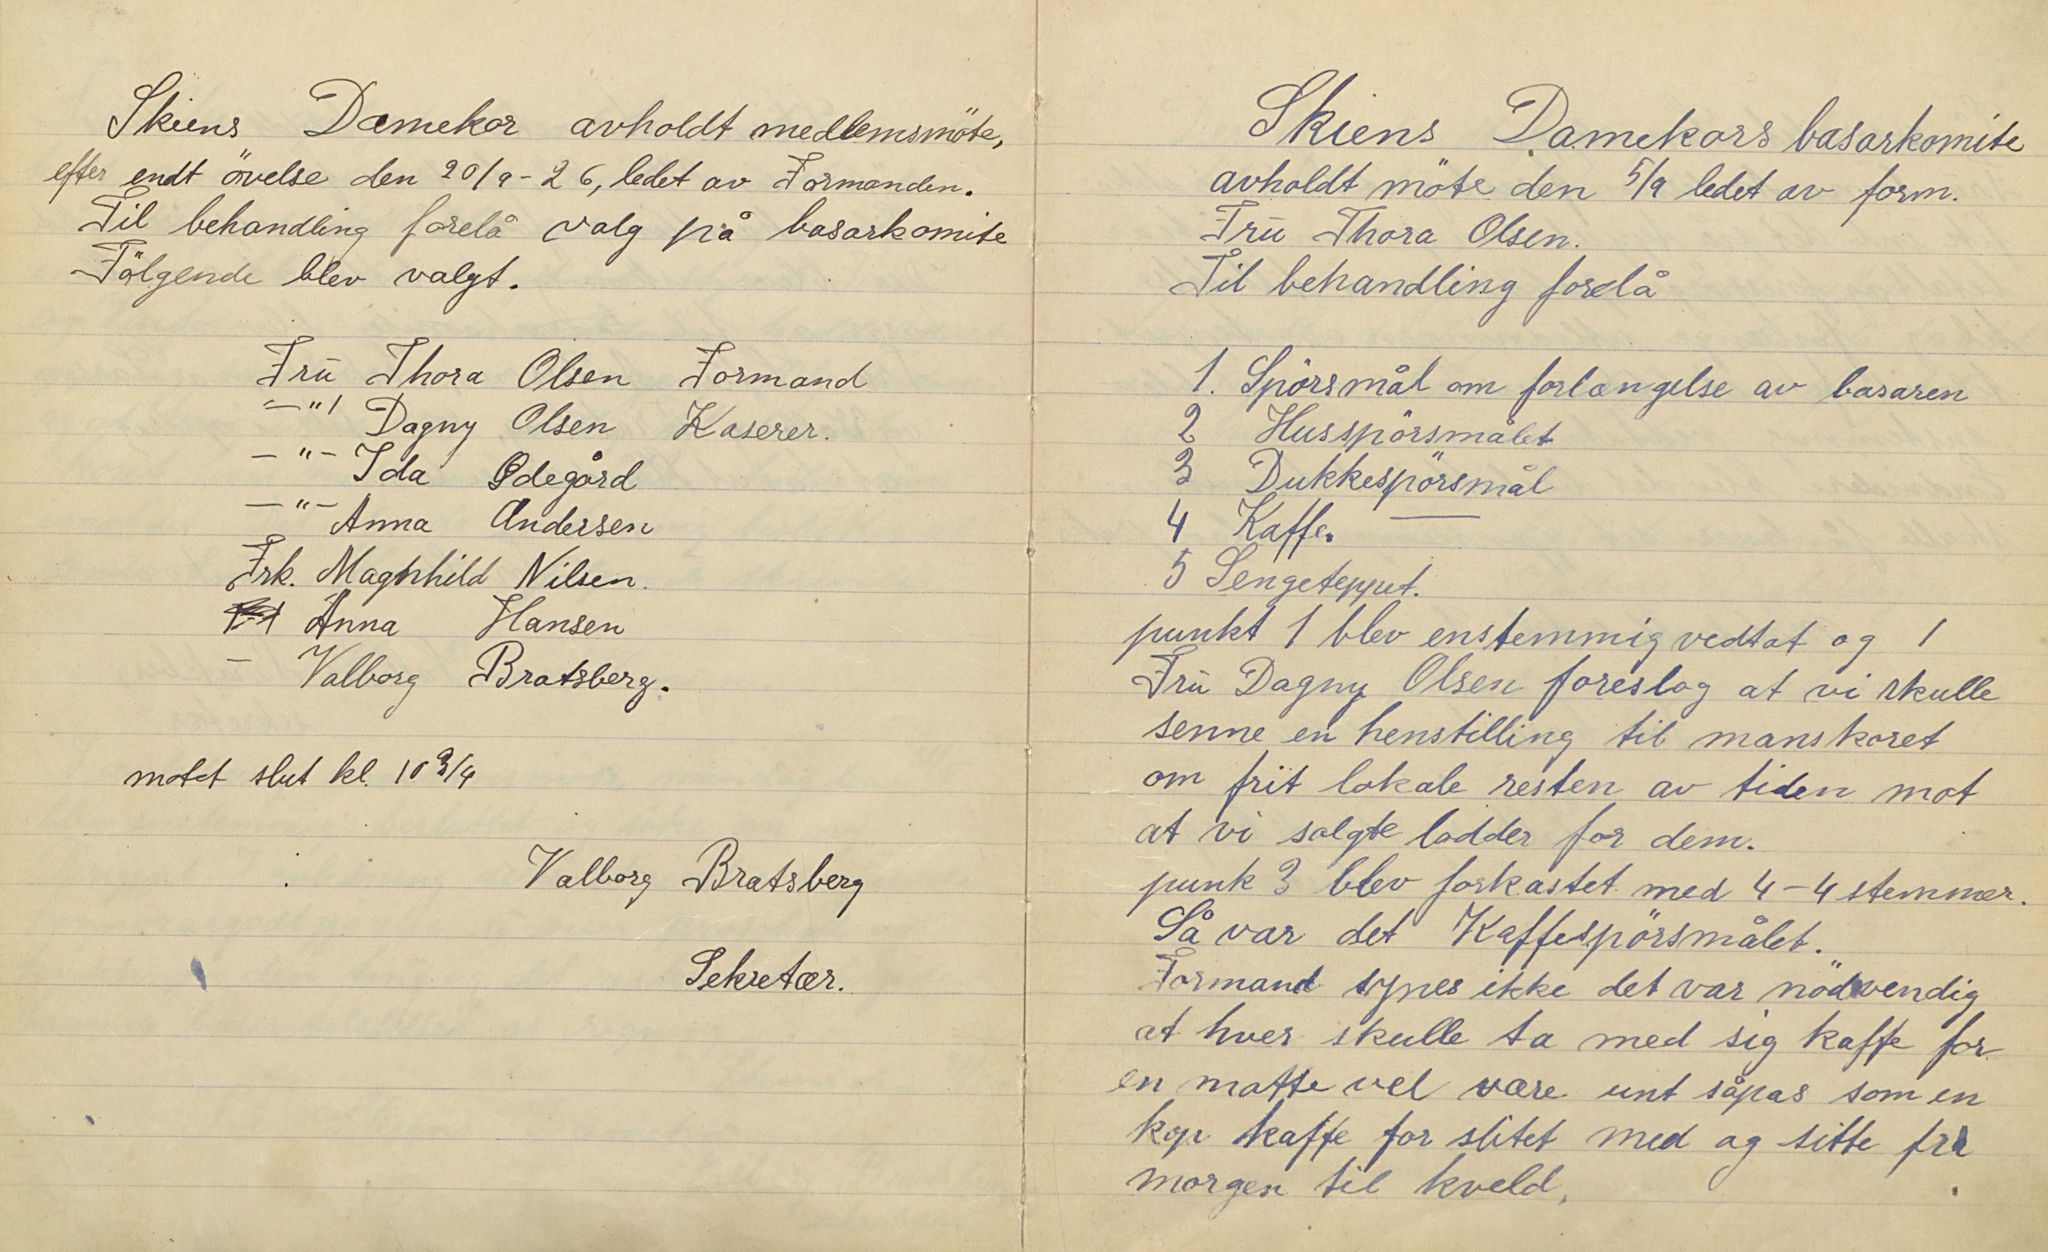 Skiens Damekor avholdt medlemsmöte,
efter endt övelse den 20/9-26, ledet av Formanden.
Til behandling forelå valg på basarkomite
Fölgende blev valgt.
Frū Thora Olsen Formand
—"— Dagny Olsen Kaserer.
—"— Ida Ødegård
—"— Anna Andersen
Frk. Maghhild Nilsen.
Anna Hansen
— Valborg Bratsberg.
motet slut kl. 10 3/4
Valborg Bratsberg
Sekretær.
Skiens Damekors basarkomite
avholdt möte den 5/9 ledet av form.
Frū Thora Olsen.
Til behandling forelå
1. Spörsmål om forlængelse av basaren
2 Husspörsmålet
3 Dukkespörsmål
4 Kaffe. —
5 Sengetepput.
punkt 1 blev enstemmig vedtat og 1
Frū Dagny Olsen foreslog at vi skulle
senne en henstilling til manskoret
om frit lokale resten av tiden mot
at vi solgte lodder for dem.
punk 3 blev forkastet med 4-4 stemmer.
Så var det Kaffespörsmålet.
Formand synes ikke det var nödvendig
at hver skulle ta med sig kaffe for
en matte vel være unt såpas som en
kop kaffe for slitet med og sitte fra
morgen til kveld.